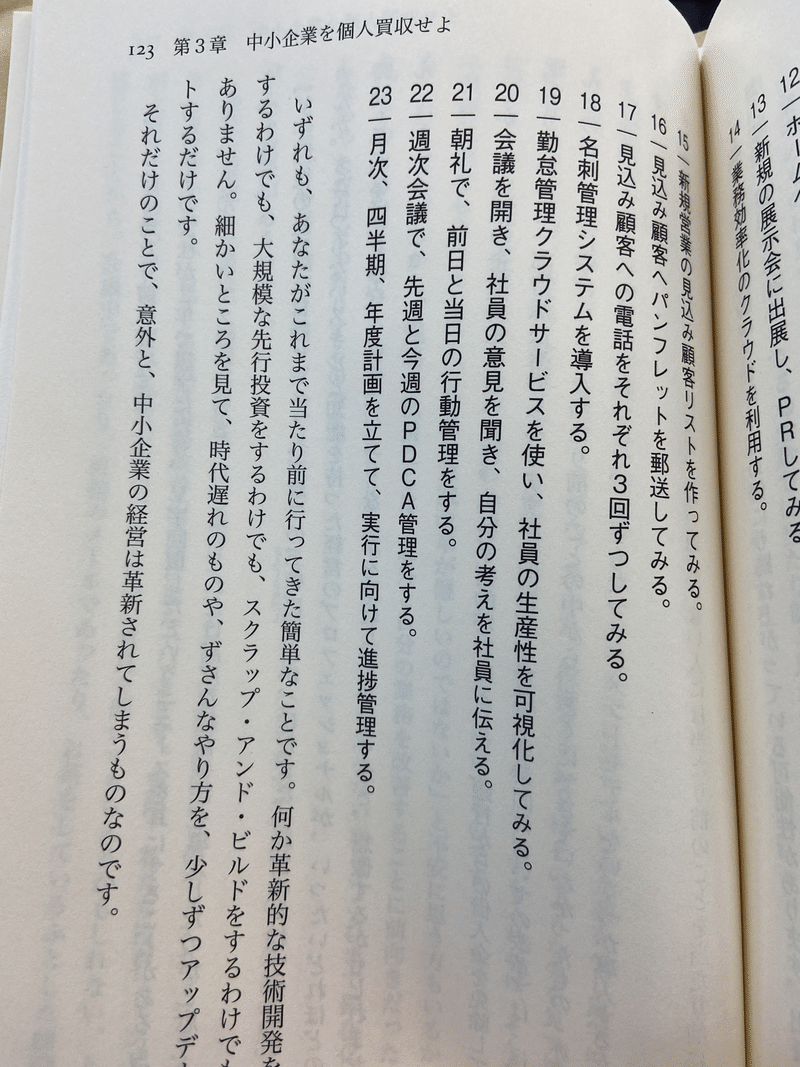 12｜ホームペ
13｜新規の展示会に出展し、PRしてみる
14｜業務効率化のクラウドを利用する。
123 第3章 中小企業を個人買収せよ
15｜新規営業の見込み顧客リストを作ってみる。
16｜見込み顧客へパンフレットを郵送してみる。
17｜見込み顧客への電話をそれぞれ3回ずつしてみる。
18｜名刺管理システムを導入する。
19｜勤怠管理クラウドサービスを使い、社員の生産性を可視化してみる。
20｜会議を開き、社員の意見を聞き、自分の考えを社員に伝える。
21｜朝礼で、前日と当日の行動管理をする。
22｜週次会議で、先週と今週のPDCA管理をする。
23｜月次、四半期、年度計画を立てて、実行に向けて進捗管理する。
いずれも、あなたがこれまで当たり前に行ってきた簡単なことです。何か革新的な技術開発を
するわけでも、大規模な先行投資をするわけでも、スクラップ・アンド・ビルドをするわけでも
ありません。細かいところを見て、時代遅れのものや、ずさんなやり方を、少しずつアップデー
トするだけです。
それだけのことで、意外と、中小企業の経営は革新されてしまうものなのです。